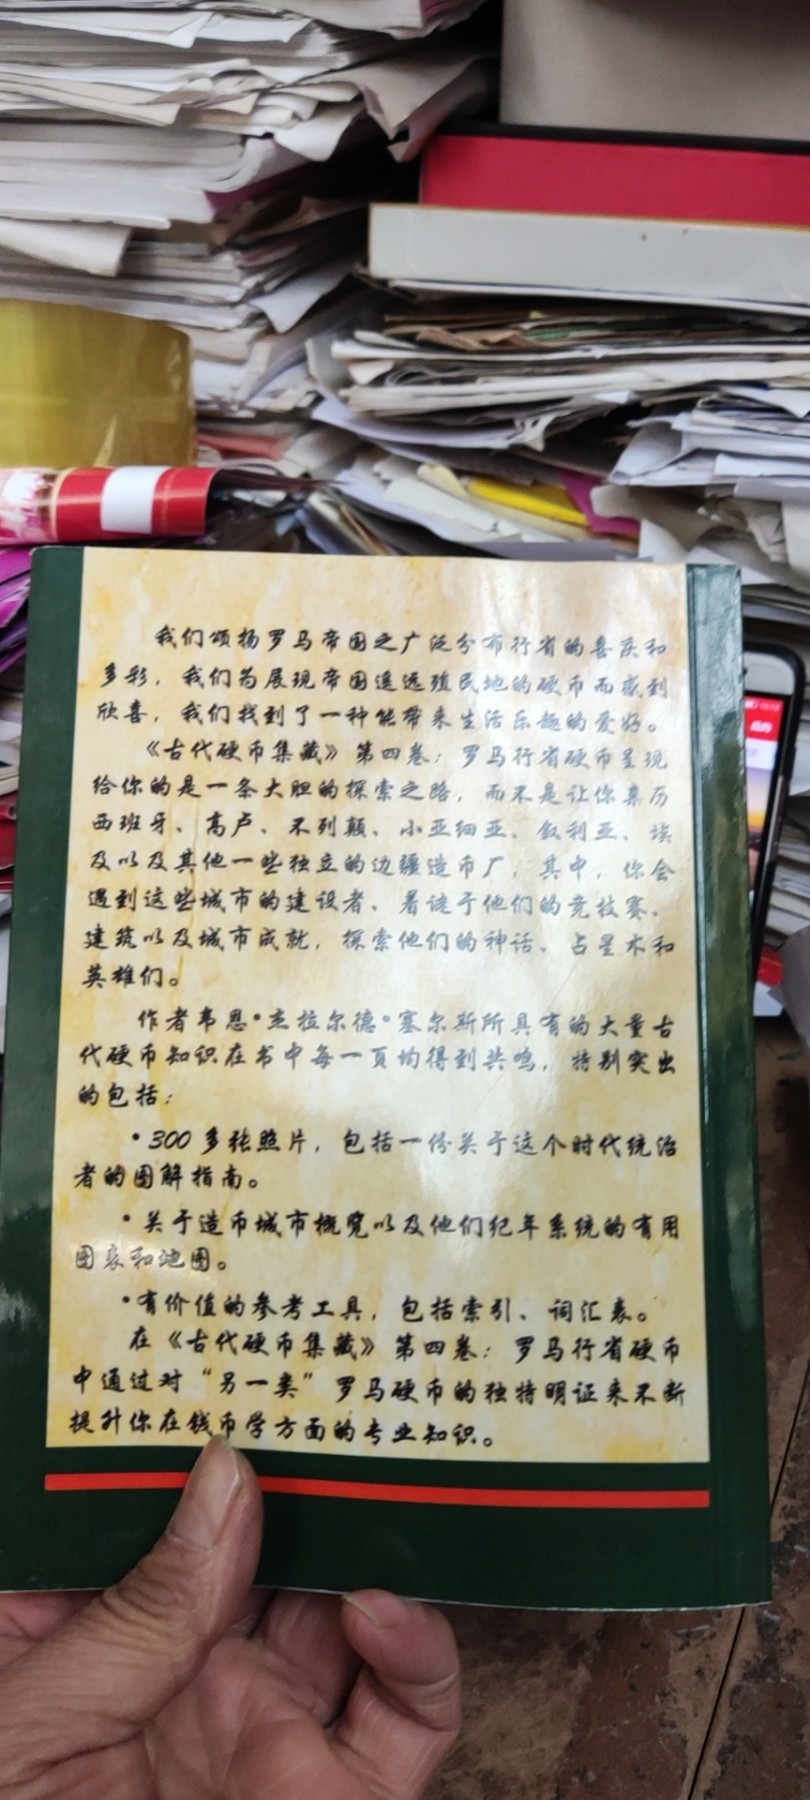 我们颂扬罗马帝国之广泛分布行省的喜庆和
多彩，我们为展现帝国遥远殖民地的硬币而感到
欣喜，我们找到了一种能带来生活乐趣的爱好。
《古代硬币集藏》第四卷：罗马行省硬币呈现
给你的是一条大胆的探索之路，而不是让你亲历
西班牙、高卢、不列颠、小亚细亚、叙利亚、埃
及以及其他一些独立的边疆造币厂，其中，你会
遇到这些城市的建设者、着谜于他们的竞技赛、
建筑以及城市成就，探索他们的神话、占星术和
英雄们。
作者韦恩•杰拉尔德•塞尔斯所具有的大量古
代硬币知识在书中每一页均得到共鸣，特别突出
的包括：
•300多张照片，包括一份关于这个时代统治
者的图解指南。
•关于造币城市概览以及他们纪年系统的有用
图表和地图。
•有价值的参考工具，包括索引、词汇表。
在《古代硬币集藏》第四卷：罗马行省硬币
中通过对“另一类”罗马硬币的独特明证来不断
提升你在钱币学方面的专业知识。